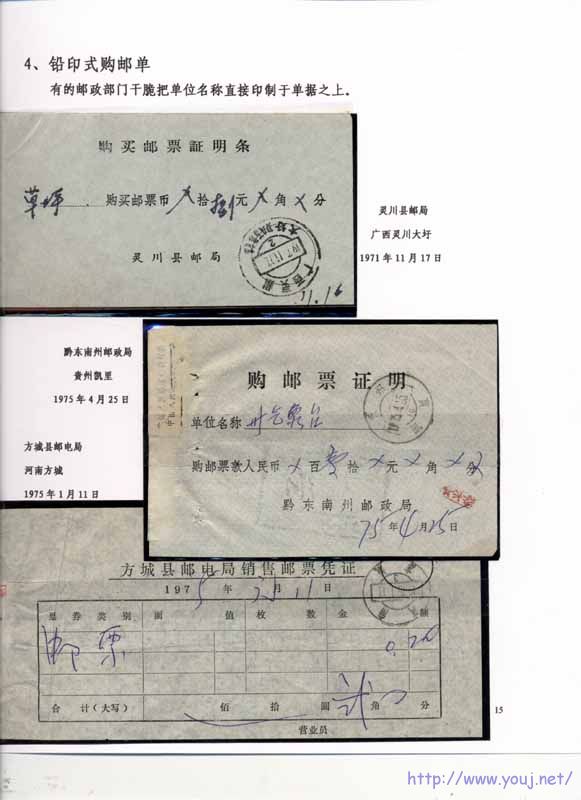 4、铅印式购邮单
有的邮政部门干脆把单位名称直接印制于单据之上。
购买邮票証明条
草坪 购买邮票币 㐅拾捌元㐅角㐅分
灵川县邮局
71.11.17
灵川县邮局
广西灵川大圩
1971年11月17日
黔东南州邮政局
贵州凯里
1975年4月25日
方城县邮电局
河南方城
1975年1月11日
购邮票证明
单位名称
购邮票款人民币㐅百壹拾㐅元㐅角㐅分
黔东南州邮政局
75年4月25日
方城县邮电局销售邮票凭证
1975年 月11日
票券类别 面值 枚数 金额
邮票
合计(大写) 佰 拾 圆 角 分
营业员
15
http://www.youj.net/